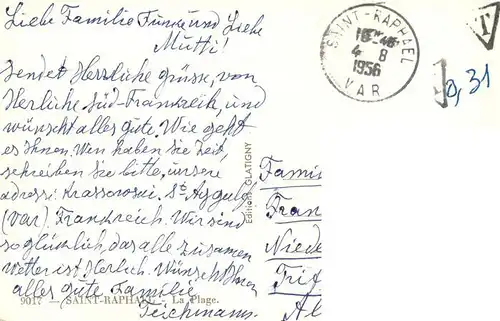 Liebe Familie Fünne und Liebe
Mutti!
Sendet Herzliche grüsse, von
Herliche Süd-Frankreik, und
wünscht alles gute. Wie geht
es Ihnen. Wen haben Sie Zeit,
schreiben Sie bitte, unsere
adress: St Aygulf,
(Var). Frankreich. Wir sind
so glücklich, das alle zusamen
Wetter ist Herlich. Wünscht Ihnen
alles gute Familie
Teichmann.
9017 — SAINT-RAPHAEL. La Plage.
Editions GLATIGNY
SAINT-RAPHAEL
4 8
1956
VAR
T
0,31
Famil
Fran
Niede
Al